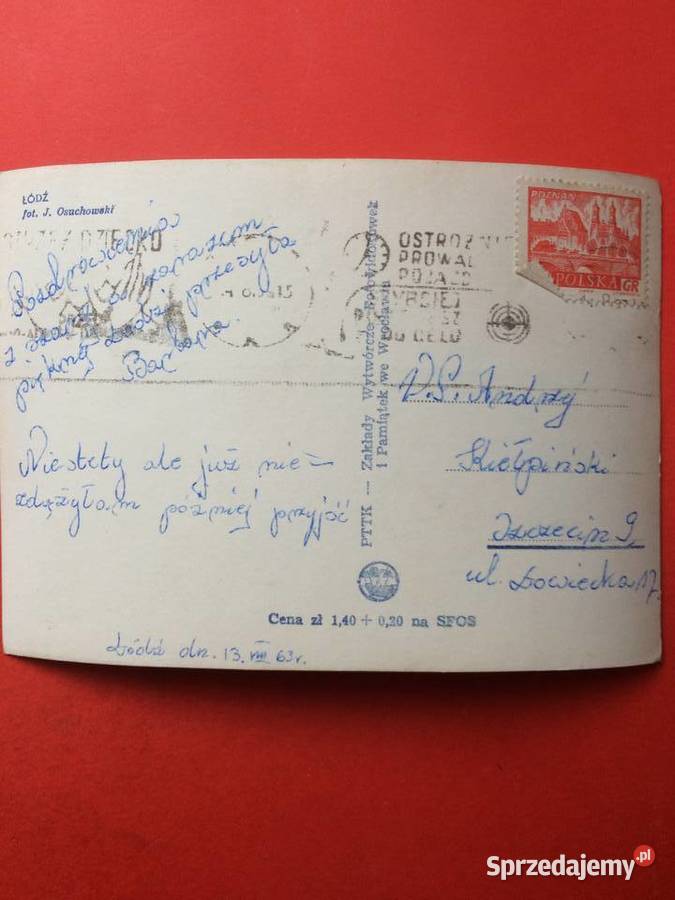 ŁÓDŹ
fot. J. Osuchowski
Pozdrowienia
z
pięknej Łodzi przesyła
Barbara.
Niestety ale już nie=
zdążyłam później przyjść
Łódź dn. 13.VIII 63r.
Cena zł 1,40 + 0,20 na SFOS
PTTK — Zakłady Wytwórcze
i Pamiątek we Wrocławiu
DZIECKO
OSTROŻNIE
PROWAD
POJAZD
DO CELU
POZNAŃ
POLSKA
GR
W.P. Andrzej
Kiełpiński
Szczecin 9
ul. Łowiecka 17.
Sprzedajemy.pl